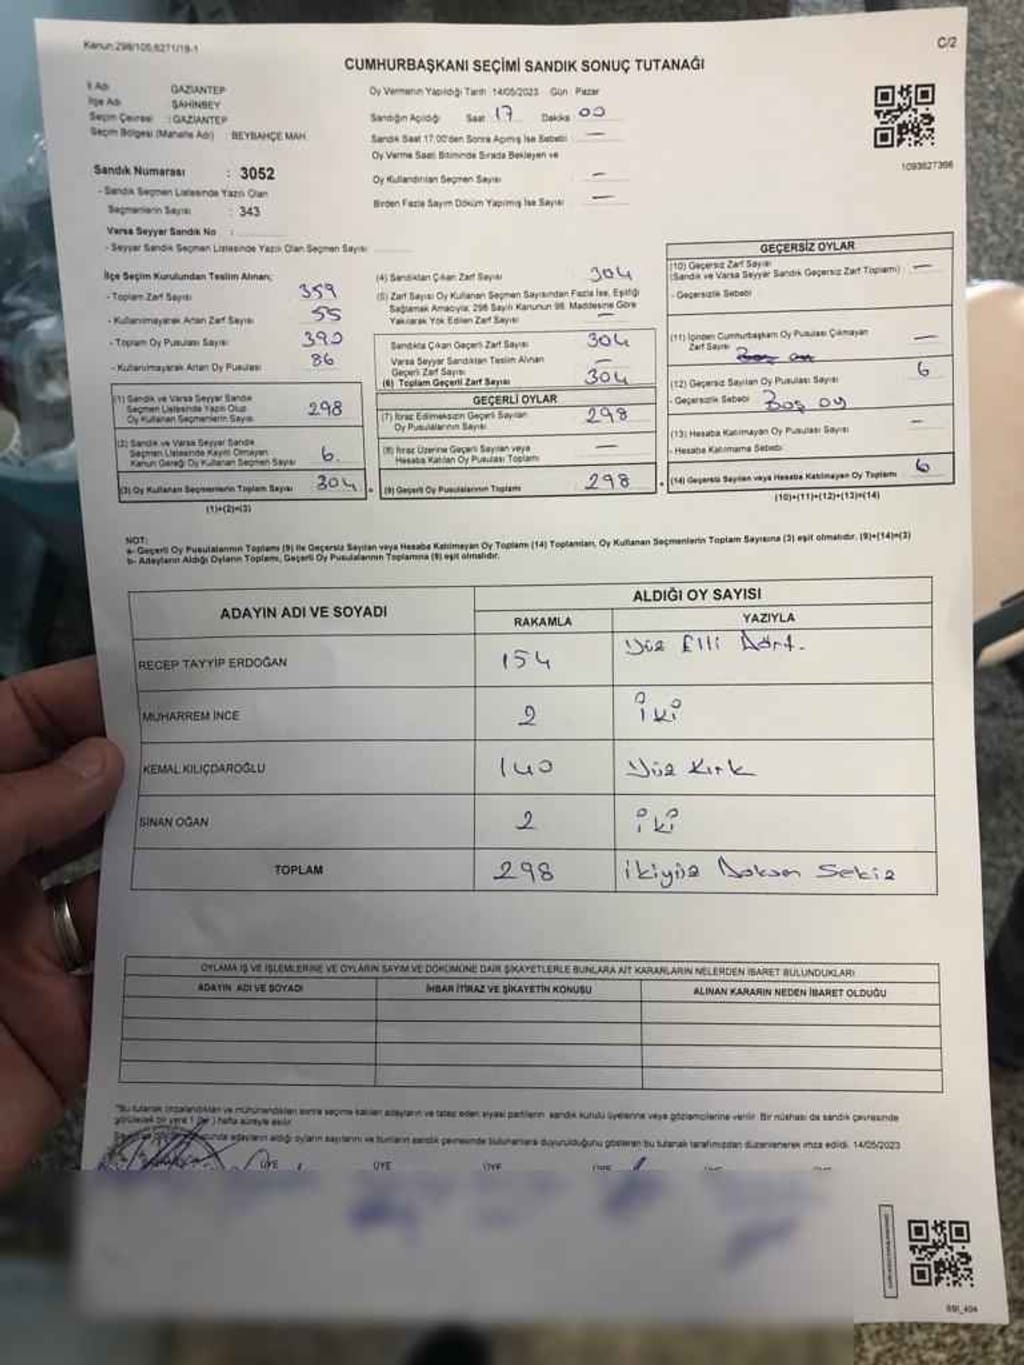 Kanun:298/105,6271/19-1
C/2
CUMHURBAŞKANI SEÇİMİ SANDIK SONUÇ TUTANAĞI
İl Adı GAZİANTEP
İlçe Adı ŞAHİNBEY
Seçim Çevresi : GAZİANTEP
Seçim Bölgesi (Mahalle Adı) : BEYBAHÇE MAH.
Oy Vermenin Yapıldığı Tarih 14/05/2023 Gün : Pazar
Sandığın Açıldığı Saat 17 Dakika 00
Sandık Saat 17.00'den Sonra Açılmış İse Sebebi —
Oy Verme Saati Bitiminde Sırada Bekleyen ve
Oy Kullandırılan Seçmen Sayısı —
Birden Fazla Sayım Döküm Yapılmış İse Sayısı —
1093627366
Sandık Numarası : 3052
- Sandık Seçmen Listesinde Yazılı Olan
Seçmenlerin Sayısı : 343
Varsa Seyyar Sandık No :
- Seyyar Sandık Seçmen Listesinde Yazılı Olan Seçmen Sayısı
İlçe Seçim Kurulundan Teslim Alınan;
- Toplam Zarf Sayısı 359
- Kullanılmayarak Artan Zarf Sayısı 55
- Toplam Oy Pusulası Sayısı 390
- Kullanılmayarak Artan Oy Pusulası 86
(1) Sandık ve Varsa Seyyar Sandık
Seçmen Listesinde Yazılı Olup
Oy Kullanan Seçmenlerin Sayısı 298
(2) Sandık ve Varsa Seyyar Sandık
Seçmen Listesinde Kayıtlı Olmayan
Kanun Gereği Oy Kullanan Seçmen Sayısı 6
(3) Oy Kullanan Seçmenlerin Toplam Sayısı 304
(1)+(2)=(3)
(4) Sandıktan Çıkan Zarf Sayısı 304
(5) Zarf Sayısı Oy Kullanan Seçmen Sayısından Fazla İse, Eşitliği
Sağlamak Amacıyla; 298 Sayılı Kanunun 98. Maddesine Göre
Yakılarak Yok Edilen Zarf Sayısı —
Sandıkta Çıkan Geçerli Zarf Sayısı 304
Varsa Seyyar Sandıktan Teslim Alınan
Geçerli Zarf Sayısı —
(6) Toplam Geçerli Zarf Sayısı 304
GEÇERLİ OYLAR
(7) İtiraz Edilmeksizin Geçerli Sayılan
Oy Pusulalarının Sayısı 298
(8) İtiraz Üzerine Geçerli Sayılan veya
Hesaba Katılan Oy Pusulası Toplamı —
(9) Geçerli Oy Pusulalarının Toplamı 298
GEÇERSİZ OYLAR
(10) Geçersiz Zarf Sayısı
(Sandık ve Varsa Seyyar Sandık Geçersiz Zarf Toplamı) —
- Geçersizlik Sebebi
(11) İçinden Cumhurbaşkanı Oy Pusulası Çıkmayan
Zarf Sayısı —
(12) Geçersiz Sayılan Oy Pusulası Sayısı 6
- Geçersizlik Sebebi Boş oy
(13) Hesaba Katılmayan Oy Pusulası Sayısı —
- Hesaba Katılmama Sebebi
(14) Geçersiz Sayılan veya Hesaba Katılmayan Oy Toplamı 6
(10)+(11)+(12)+(13)=(14)
NOT:
a- Geçerli Oy Pusulalarının Toplamı (9) ile Geçersiz Sayılan veya Hesaba Katılmayan Oy Toplamı (14) Toplamları, Oy Kullanan Seçmenlerin Toplam Sayısına (3) eşit olmalıdır. (9)+(14)=(3)
b- Adayların Aldığı Oyların Toplamı, Geçerli Oy Pusulalarının Toplamına (9) eşit olmalıdır.
ADAYIN ADI VE SOYADI ALDIĞI OY SAYISI
RAKAMLA YAZIYLA
RECEP TAYYİP ERDOĞAN 154 Yüz Elli Dört.
MUHARREM İNCE 2 iki
KEMAL KILIÇDAROĞLU 140 Yüz Kırk
SİNAN OĞAN 2 iki
TOPLAM 298 ikiyüz Doksan Sekiz
OYLAMA İŞ VE İŞLEMLERİNE VE OYLARIN SAYIM VE DÖKÜMÜNE DAİR ŞİKAYETLERLE BUNLARA AİT KARARLARIN NELERDEN İBARET BULUNDUKLARI
ADAYIN ADI VE SOYADI İHBAR İTİRAZ VE ŞİKAYETİN KONUSU ALINAN KARARIN NEDEN İBARET OLDUĞU
"Bu tutanak imzalandıktan ve mühürlendikten sonra seçime katılan adayların ve talep eden siyasi partilerin sandık kurulu üyelerine veya gözlemcilerine verilir. Bir nüshası da sandık çevresinde
görülebilir bir yere 1 (bir) hafta süreyle asılır.
adayların aldığı oyların sayılarını ve bunların sandık çevresinde bulunanlara duyurulduğunu gösteren bu tutanak tarafımızdan düzenlenerek imza edildi. 14/05/2023
ÜYE ÜYE ÜYE ÜYE
SSİ_404